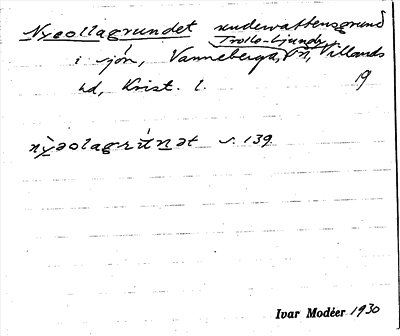 Nyeollagrundet undervattensgrund
Trolle-Ljungby
i sjön, Vanneberga, sn, Villands
hd, Krist. l. 19
s. 139
Ivar Modéer 1930